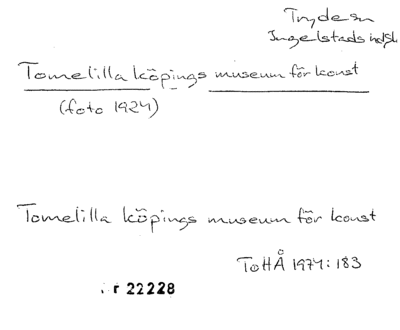 Tryde sn
Ingelstads hd Sk.
Tomelilla köpings museum för konst
(foto 1924)
Tomelilla köpings museum för konst
ToHÅ 1974:183
r 22228